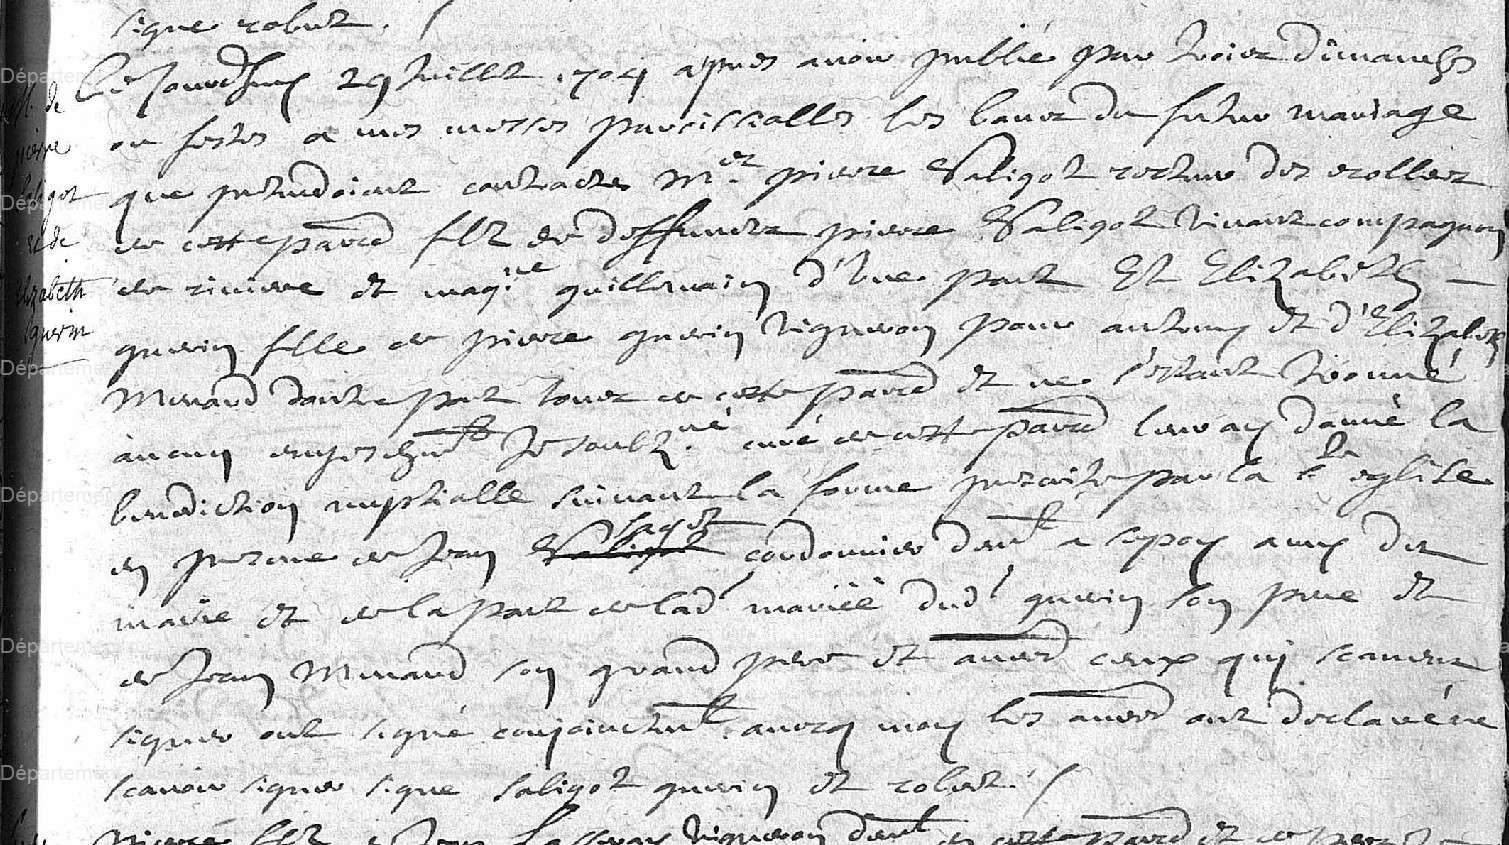 signe robert.
Ce Jourdhuy 29 Juillet 1704 apres avoir publié par trois dimanches
ou festes a mes messes paroissialles les bans du futur mariage
que pretendoient contracter Mre pierre Saligot recteur des escolles
de cette paroisse filz de deffunct pierre Saligot vivant compagnon
de riviere et guillemain d'une part Et Elizabeth
guerin fille de pierre guerin vigneron pour autemp et d'Elizabeth
Minard dautre part tous de cette paroisse et ne s'estant trouvé
aucun empeschemt Je soubzné curé de cette paroisse leur ay donné la
benediction nuptialle suivant la forme prescrite par la Ste eglise
en presence de Jean Sagot cordonnier demt a amy du
marié et de la part de lad mariée dud guerin son pere et
de Jean Minard son grand pere et autres ceux qui scavent
signer ont signé conjoinctemt avecq moy les autres ont declaré ne
scavoir signer signe saligot guerin et robert.
vigneron demt en cette
de
pierre
saligot
et de
Elizabeth
guerin